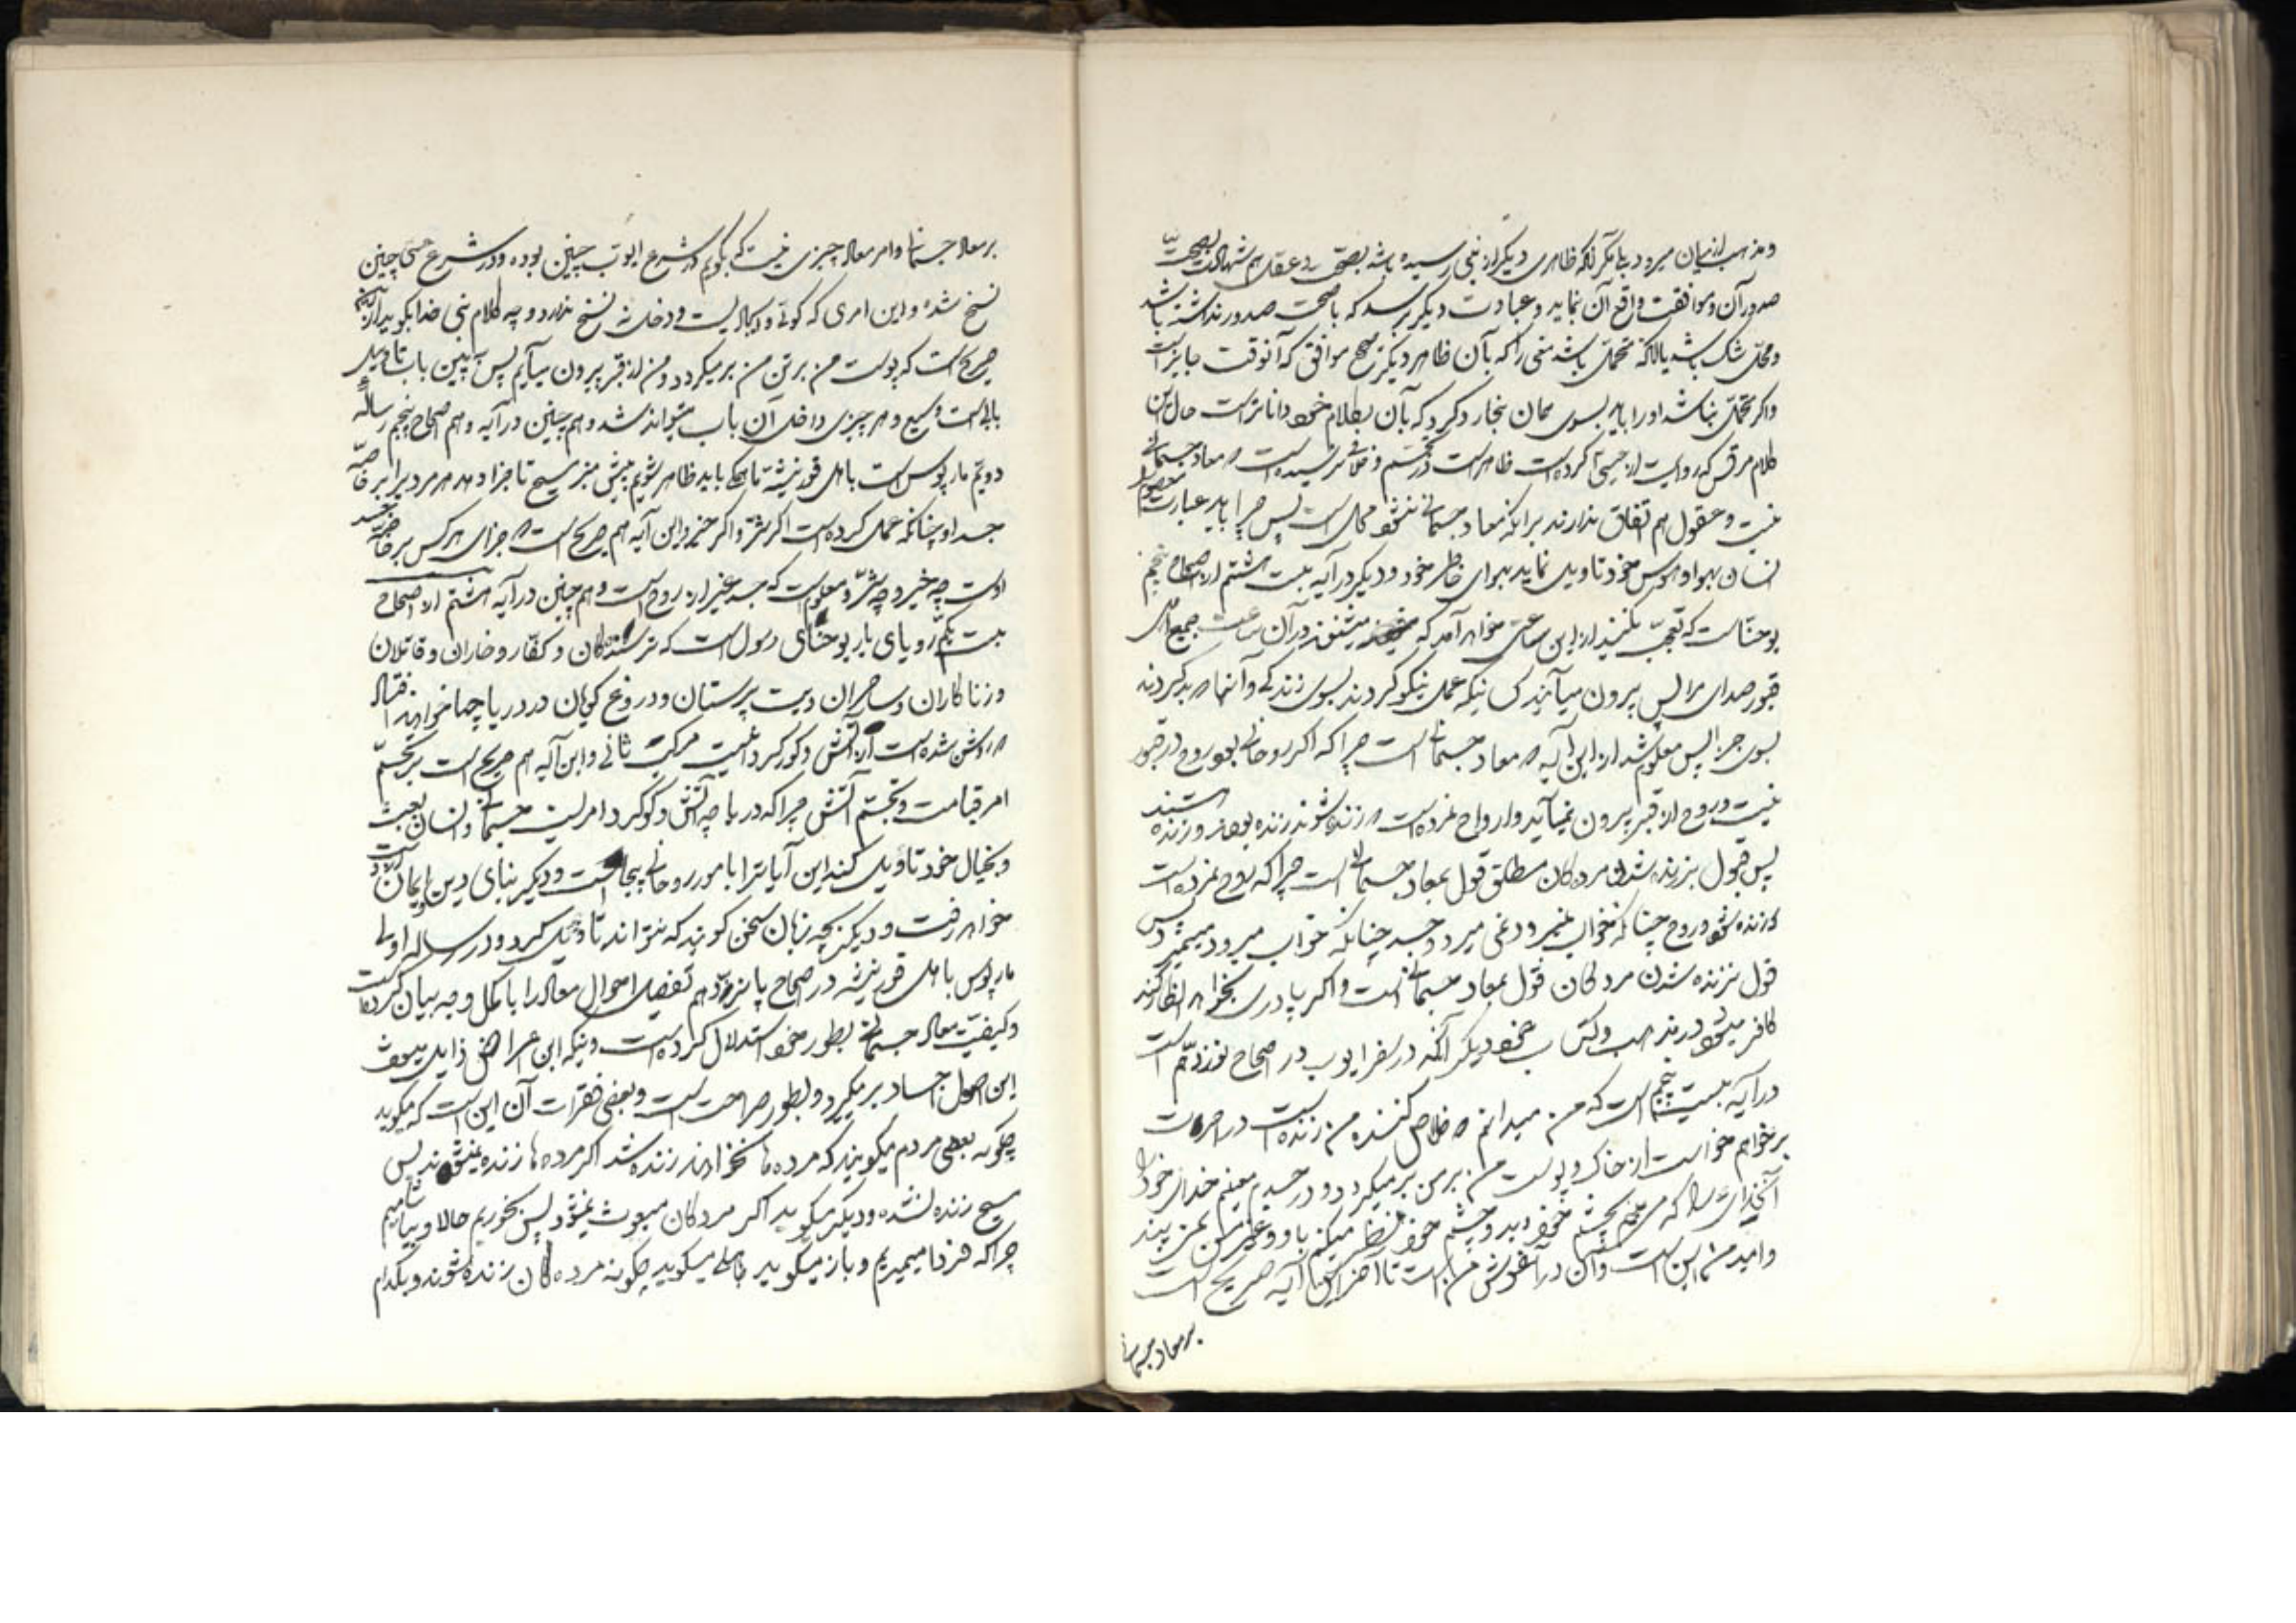 و مذهب از میان میرود بلی مگر آنکه ظاهری دیگر از نبی رسیده باشد بصحت و عقل هم شهادت بصحت
صدور آن و موافقت واقع آن نماید و عبارت دیگر برسد که با صحت صدور نداشته باشد
و محل شک باشد یا آنکه محتمل باشد معنی را که بآن ظاهر دیگر صحیح موافق که آنوقت جایز است
و اگر محتمل نباشد او را باید بسوی همان نجار رد کرد که بآن بکلام خود داناتر است حال این
کلام مرقس که روایت از عیسی کرده است ظاهر است در تجسم و خلافی نرسیده است که معاد جسمانی
نیست و عقول هم اتفاق ندارند بر اینکه معاد جسمانی نمیشود محال است پس چرا باید عبارت معصوم را
انسان بهوا و هوس خود تاویل نماید برای خاطر خود و دیگر در آیه بیست هشتم از اصحاح پنجم
یوحنا است که تعجب نکنید از این ساعتی خواهد آمد که میشنوند در آن ساعت جمیع اهل
قبور صدای مرا پس بیرون میآیند کسانیکه عمل نیکو کردند بسوی زندگی و آنها که بد کردند
بسوی جزا پس معلوم شد از این آیه که معاد جسمانی است چرا که اگر روحانی بود روح در قبور
نیست و روح از قبر بیرون نمیآید و ارواح نمرده است که زنده شوند زنده بودند و زنده هستند
پس قبول بزنده شدن مردگان مطلق قول بمعاد جسمانی است چرا که روح نمرده است
که زنده شود و روح چنانکه بخواب نمیرود نمی میرد و جسد چنانکه خواب میرود میمیرد پس
قول بزنده شدن مردگان قول بمعاد جسمانی است و اگر پادری بخواهد انکار کند
کافر میشود در مذهب و کتاب خود دیگر آنکه در سفر ایوب در اصحاح نوزدهم است
در آیه بیست پنجم است که من میدانم که خلاص کننده من زنده است در آخرت
برخواهم خواست از خاک و پوست من بر من برمیگردد و در جسدم میبینم خدای خود را
آنخدائی را که من بچشم خود دید و چشم خود نظر میکنم باو و غیر من نمی بیند
و امید من این است و آن در آغوش من است تا آخر این آیه صریح است
بر معاد جسمانی
بر معاد جسمانی و امر معاد چیزی نیست که بگویم در شرع ایوب چنین بوده و در شرع عیسی چنین
نسخ شده و این امری که کونی و ایجادیست و دخلی به نسخ ندارد و چه کلام نبی خدا بگوید از این
صریح است که پوست من بر تن من برمیگردد و من از قبر بیرون میآیم پس اینچنین باب تاویل
بابی است وسیع و هر چیزی داخل آن باب میتواند شد و هم چنین در آیه دهم اصحاح پنجم رساله
دویم مار پولس است باهل قورنیثه تا همگی باید ظاهر شویم پیش منبر مسیح تا جزا دهد هر مردیرا برابر خاصه
جسد او چنانکه عمل کرده است اگر شر و اگر خیر و این آیه هم صریح است که جزای هر کس بر خاصه جسد
اوست چه خیر و چه شر و معلوم است که جسد غیر از روح است و هم چنین در آیه هشتم از اصحاح
بیست یکم رویای مار یوحنای رسول است که ترسندگان و کفار و خاران و قاتلان
و زناکاران و ساحران و بت پرستان و دروغ گویان در دریاچها خواهند افتاد
که روشن شده است از آتش و گوگرد نیست مرگ ثانی و این آیه هم صریح است بر تجسم
امر قیامت و تجسم آتش چرا که دریاچه آتش و گوگرد امریست جسمانی و انسان بعبث
و بخیال خود تاویل کند این آیاترا بامور روحانی بیجا است و دیگر بنای دین و ایمان
خواهد رفت و دیگر بچه زبان سخن گویند که نتواند تاویل کرد و در رساله اولی
مار پولس باهل قورنیثه در اصحاح پانزدهم تفصیل احوال معاد را باکمل وجه بیان کرده است
و کیفیت معاد جسمانی بطور خود استدلال کرده است و اینکه این اعراض زایل میشود
این اصول اجساد برمیگردد بطور صراحت است و بعضی فقرات آن این است که میگوید
چگونه بعضی مردم میگویند که مرده ها نخواهند زنده شد اگر مرده ها زنده نمیشوند پس
مسیح زنده نشده و دیگر میگوید اگر مردگان مبعوث نمیشود پس بخوریم حالا و بیاشامیم
چرا که فردا میمیریم و باز میگوید میگوید چگونه مرده گان زنده شوند و بکدام